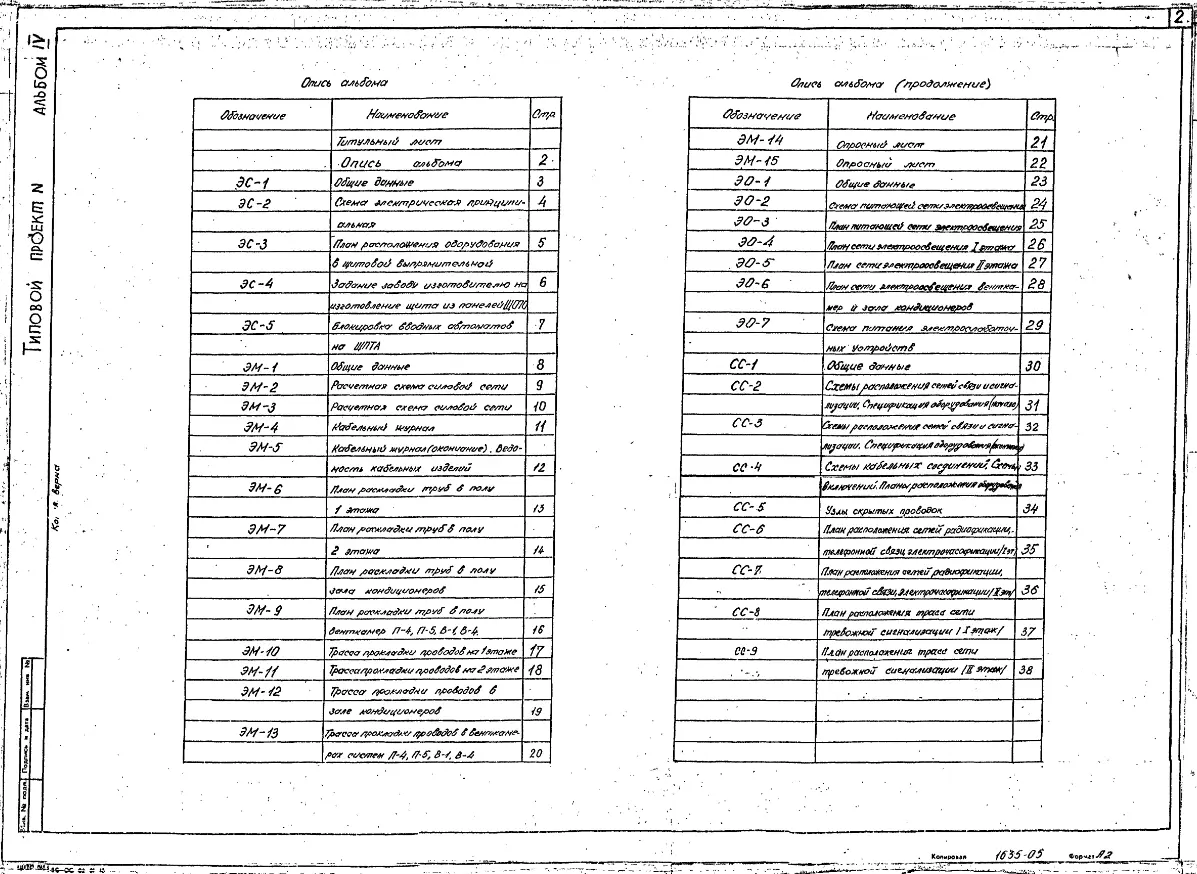 2
АЛЬБОМ IV
ТИПОВОЙ ПРОЕКТ N
Опись альбома
Обозначение Наименование Стр.
Титульный лист
Опись альбома 2
ЭС-1 Общие данные 3
ЭС-2 Схема электрическая принципи- 4
альная
ЭС-3 План расположения оборудования 5
в щитовой выпрямительной
ЭС-4 Задание заводу изготовителю на 6
изготовление щита из панелей ЩПТА
ЭС-5 Блокировка вводных автоматов 7
на ЩПТА
ЭМ-1 Общие данные 8
ЭМ-2 Расчетная схема силовой сети 9
ЭМ-3 Расчетная схема силовой сети 10
ЭМ-4 Кабельный журнал 11
ЭМ-5 Кабельный журнал (окончание). Ведо-
мость кабельных изделий 12
ЭМ-6 План раскладки труб в полу
1 этажа 13
ЭМ-7 План раскладки труб в полу
2 этажа 14
ЭМ-8 План раскладки труб в полу
зала кондиционеров 15
ЭМ-9 План раскладки труб в полу
венткамер П-4, П-5, В-1, В-4. 16
ЭМ-10 Трасса прокладки проводов на 1 этаже 17
ЭМ-11 Трасса прокладки проводов на 2 этаже 18
ЭМ-12 Трасса прокладки проводов в
зале кондиционеров 19
ЭМ-13 Трасса прокладки проводов в венткаме-
рах систем П-4, П-5, В-1, В-4 20
Опись альбома (продолжение)
Обозначение Наименование Стр.
ЭМ-14 Опросный лист 21
ЭМ-15 Опросный лист 22
ЭО-1 Общие данные 23
ЭО-2 Схема питающей сети электроосвещения 24
ЭО-3 План питающей сети электроосвещения 25
ЭО-4 План сети электроосвещения I этажа 26
ЭО-5 План сети электроосвещения II этажа 27
ЭО-6 План сети электроосвещения вентка- 28
мер и зала кондиционеров
ЭО-7 Схема питания электрослаботоч- 29
ных устройств
СС-1 Общие данные 30
СС-2 Схемы расположения сетей связи и сигна-
лизации, Спецификация оборудования (начало) 31
СС-3 Схемы расположения сетей связи и сигна- 32
лизации. Спецификация оборудования
СС-4 Схемы кабельных соединений, Схемы 33
включений. Планы расположения оборудования
СС-5 Узлы скрытых проводок 34
СС-6 План расположения сетей радиофикации,
телефонной связи, электрочасофикации /I эт/ 35
СС-7 План расположения сетей радиофикации,
телефонной связи, электрочасофикации /II эт/ 36
СС-8 План расположения трасс сети
тревожной сигнализации /I этаж/ 37
СС-9 План расположения трасс сети
тревожной сигнализации /II этаж/ 38
верна
Взам. инв. №
Подпись и дата
Инв. № подл.
Копировал 1635-05 Формат А2